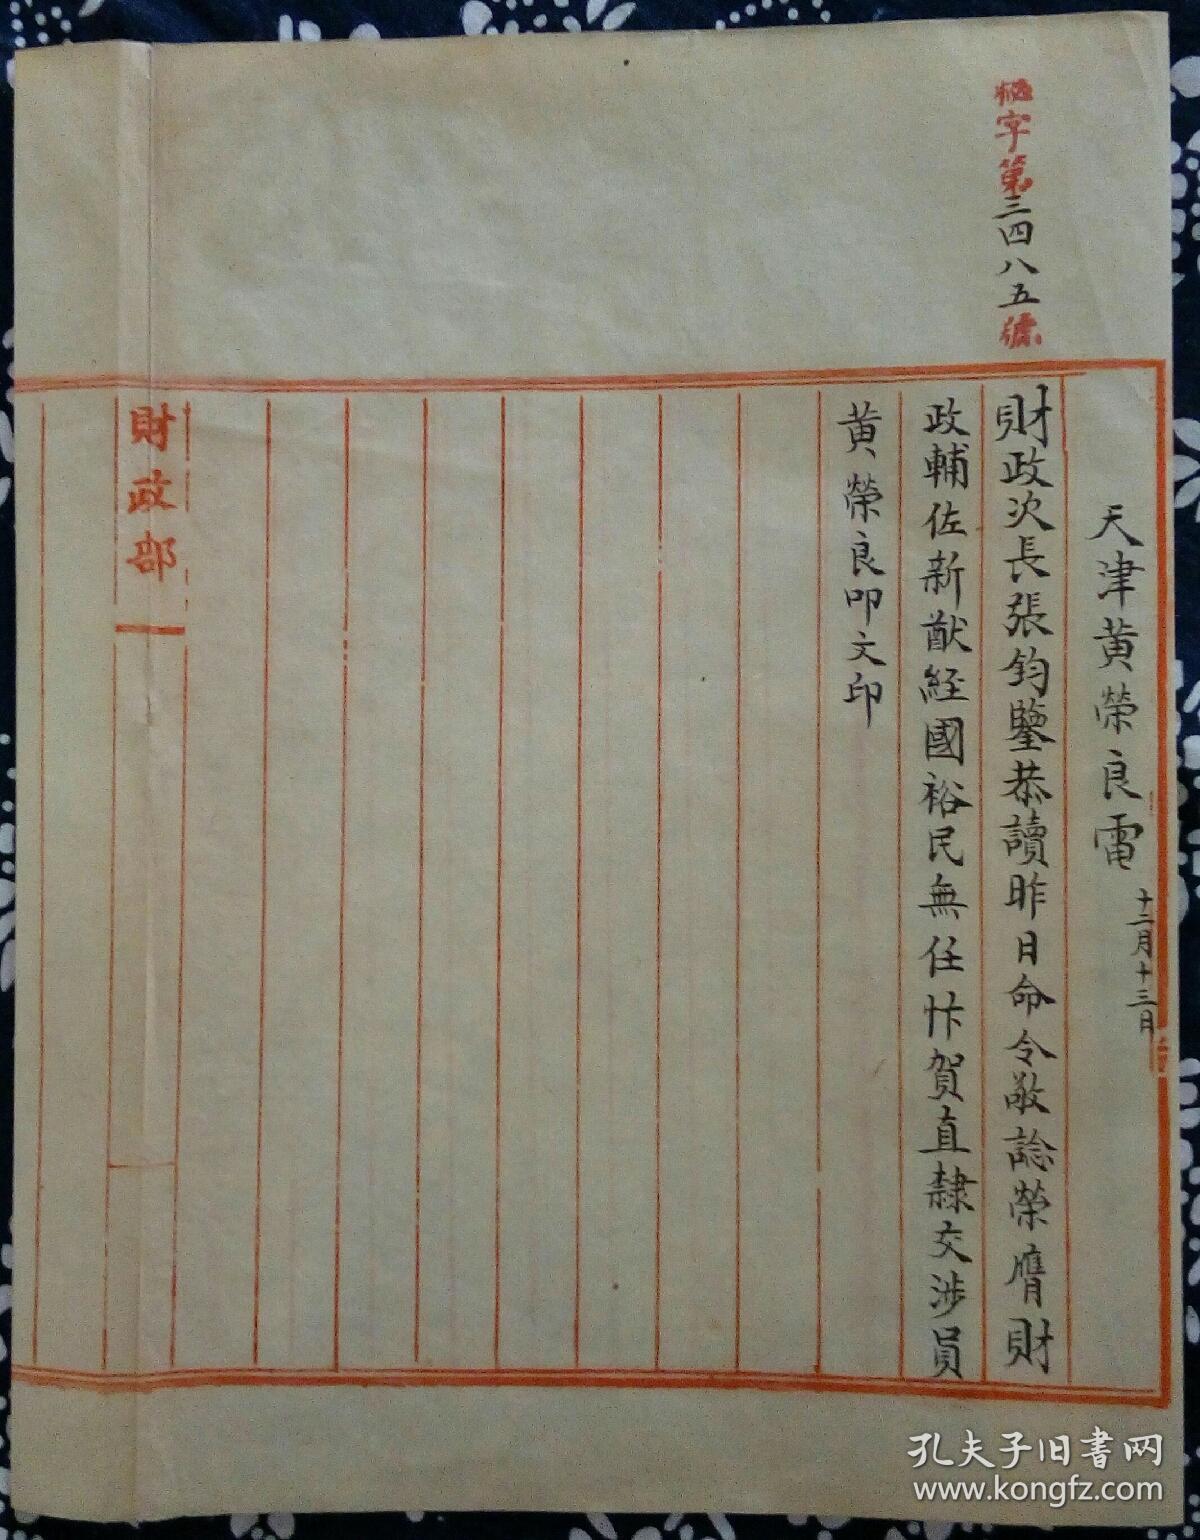 秘字第三四八五號
天津黄榮良電 十二月十三日
財政次長張鈞鑒恭讀昨日命令敬諗榮膺財
政輔佐新猷経國裕民無任忭賀直隸交涉員
黄榮良叩文印
財政部
孔夫子旧書网
www.kongfz.com